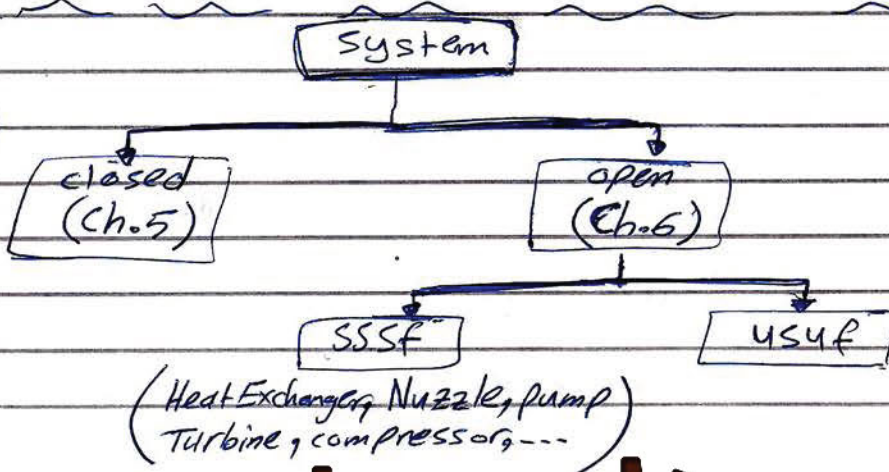 System
closed
(Ch.5)
open
(Ch.6)
SSSF
USUF
(Heat Exchanger, Nuzzle, pump
Turbine, compressor, ---)